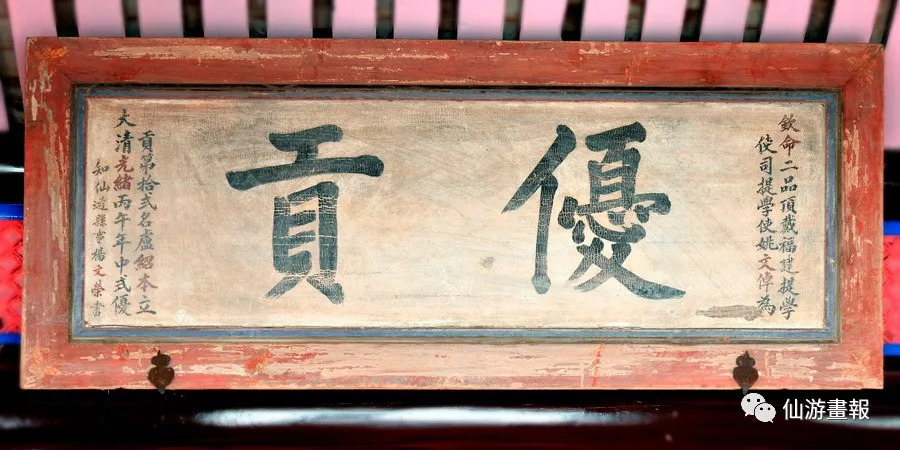 欽命二品頂戴福建提學
使司提學使姚文倬為
優貢
大清光緒丙午年中式優
貢第拾弍名盧紹本立
知仙遊縣事楊文榮書
仙游畫報